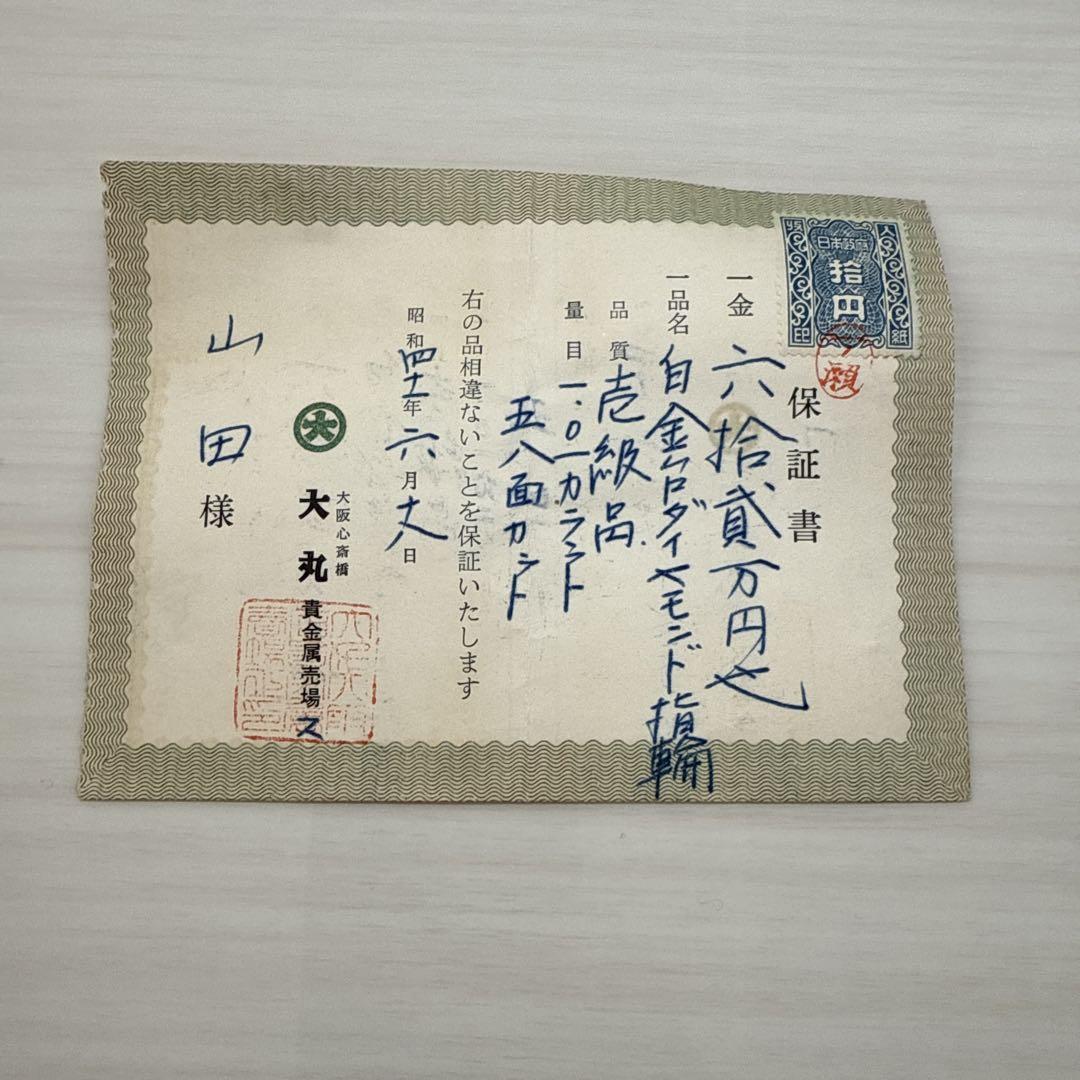 収入印紙
日本政府
拾円
保証書
一金 六拾貳万円也
一品名 白金台ダイヤモンド指輪
品質 壱級品
量目 一.〇一カラット
五八面カット
右の品相違ないことを保証いたします
昭和四十一年六月十八日
大
大阪心斎橋
大丸 貴金属売場
山田様